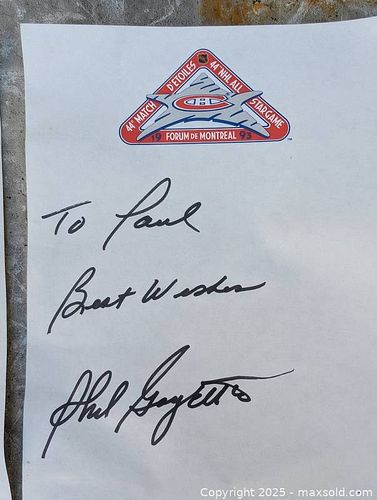 44e MATCH D'ETOILES 44th NHL ALL STAR GAME
19 FORUM DE MONTREAL 93
To Paul
Best Wishes
Phil Goyette
Copyright 2025 - maxsold.com